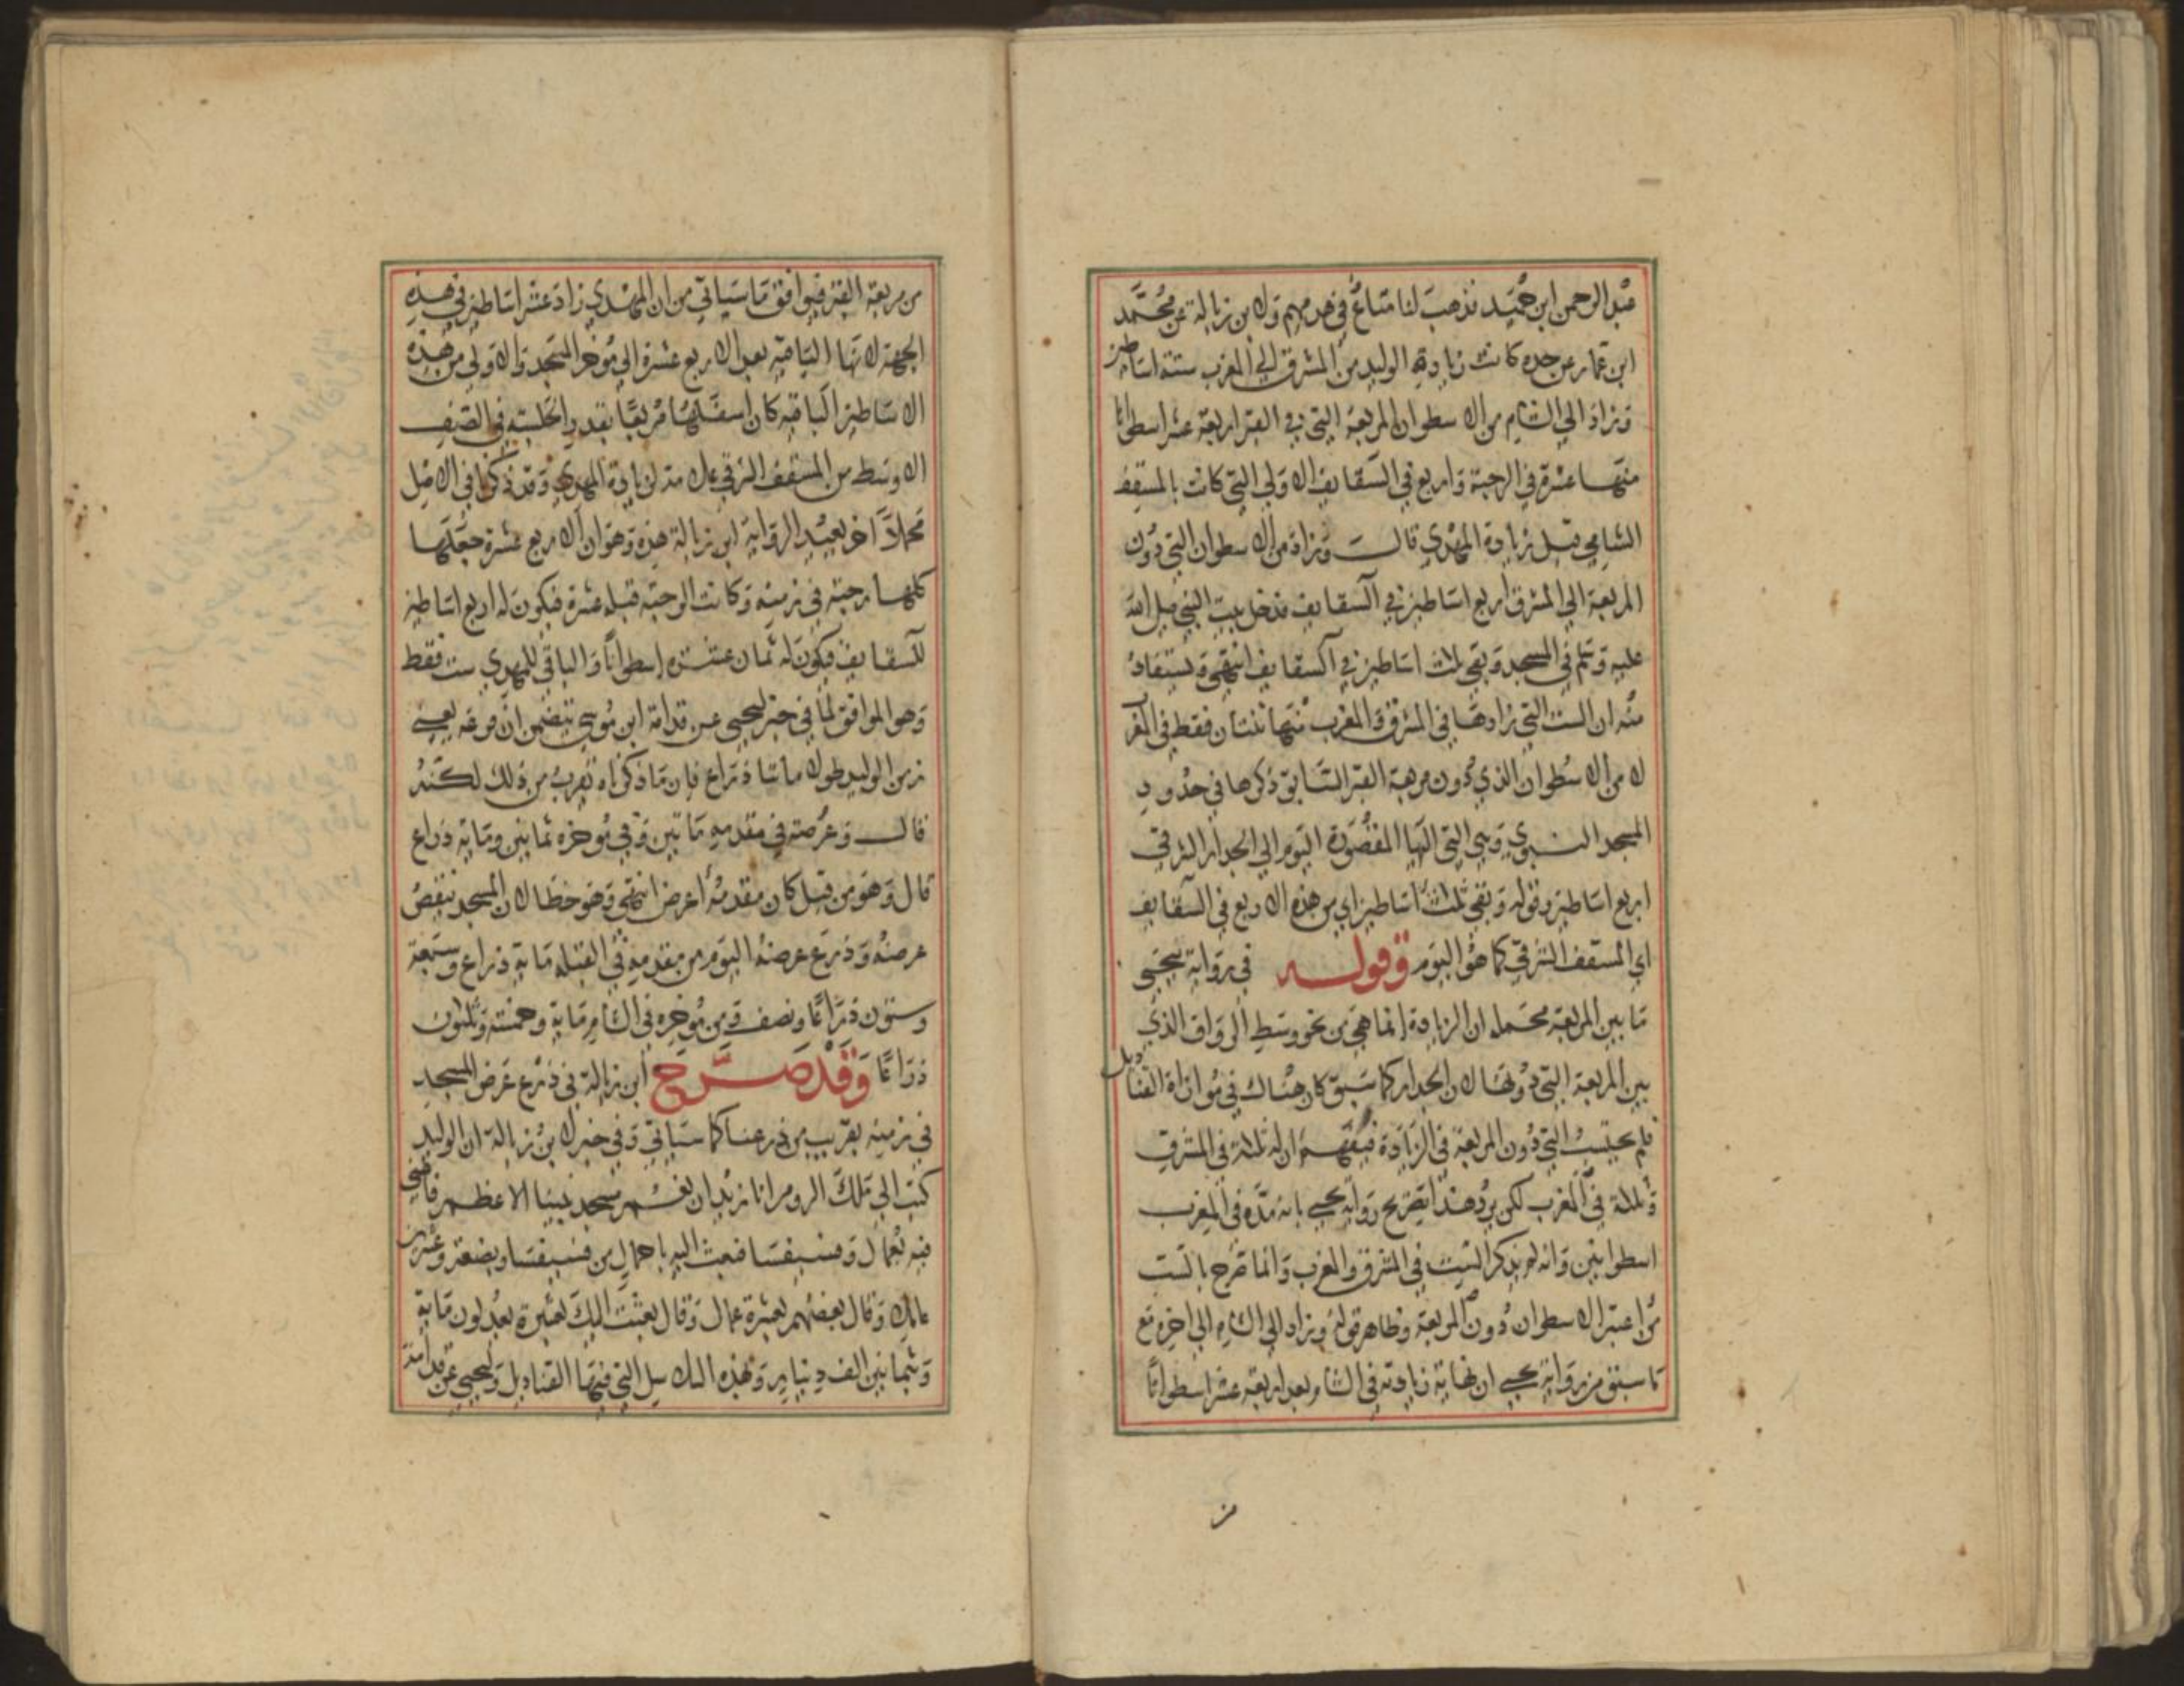 عبد الرحمن ابن حميد فذهب لنا متاع في هدمهم ولابن زبالة عن محمد
ابن عمار عن جده كانت زيادة الوليد من المشرق الي المغرب ستة اساطين
وزاد الي الشام من الاسطوان المربعة التي في القبر اربعة عشر اسطوانا
منها عشرة في الرحبة واربع في السقايف الاولي التي كانت بالمسقف
الشامي قبل زيادة المهدي قالت وزاد من الاسطوان التي دون
المربعة الي المشرق اربع اساطين في السقايف فدخل بيت النبي صلي الله
عليه وسلم في المسجد وبقي ثلاث اساطين في السقايف انتهي ويستفاد
منه ان الست التي زادها في المشرق والمغرب منها ثنتان فقط في المغرب
لان من الاسطوان الذي دون مربعة القبر السابق ذكرها في حدود
المسجد النبوي وهي التي اليها المقصورة اليوم الي الجدار الشرقي
اربع اساطين وقوله وبقي ثلث اساطين اي من هذه الاربع في السقايف
اي المسقف الشرقي كما هو اليوم وقوله في رواية يحيى
ما بين المربعة محتمل ان الزيادة انما هي من نحو وسط الرواق الذي
بين المربعة التي دونها لان الجدار كما سبق كان هناك في موازاة القناديل
فلم يحتسب التي دون المربعة في الزيادة فيفهم ان له ثلاثة في المشرق
وثلاثة في المغرب لكن يرد هذا تصريح رواية يحيى بانه مده في المغرب
اسطوانين وانه لم يذكر الست في المشرق والمغرب وانما صرح بالست
من اعتبر الاسطوان دون المربعة وظاهر قوله وزاد الي الشام الي اخره مع
ما سبق من رواية يحيى ان نهاية زيادته في الشام بعد اربعة عشر اسطوانا
من مربعة القبر فيوافق ما سياتي من ان المهدي زاد عشر اساطين في هذه
الجهة لانها الباقية بعد الاربع عشرة الي موخر المسجد والاولي من هذه
الاساطين الباقية كان اسفلها مربعا بقدر الجلسة في الصف
الاوسط من المسقف الشرقي علامة لزيادة المهدي وقد ذكرنا في الاصل
محملا اخر بعيد الرواية ابن زبالة هذه وهو ان الاربع عشرة جعلها
كلها رحبة في زمنه وكانت الرحبة قبله عشرة فيكون له اربع اساطين
للسقايف فيكون له ثمان عشرة اسطوانا والباقي للمهدي ست فقط
وهو الموافق لما في خبر ليحيى عن قدامة ابن موسي يتضمن ان فرغه يعني
زمن الوليد طوله مائتا ذراع فان ما ذكرناه يقرب من ذلك لكنه
قال وعرضه في مقدمه مائتين وفي موخره ثمانين وماية ذراع
قال وهو من قبل كان مقدمه اعرض انتهي وهو خطا لان المسجد ينقص
عرضه وذرع عرضه اليوم من مقدمه في القبلة ماية ذراع وسبعة
وستون ذراعا ونصف ومن موخره في الشام ماية وخمسة وثلثون
ذراعا وقد صرح ابن زبالة في ذرع عرض المسجد
في زمنه بقريب من ذرعنا كما سياتي وفي خبر لابن زبالة ان الوليد
كتب الي ملك الروم انا نريد ان نعمر مسجد نبينا الاعظم فاعني
فيه بعمال وفسيفسا فبعث اليه باحمال من فسيفسا وبضعة وعشرين
عاملا وقال بعضهم بعشرة عمال وقال بعثت اليك بعشرة يعدلون ماية
وبثمانين الف دينار وبهذه السلاسل التي فيها القناديل وليحيى عن قدامة